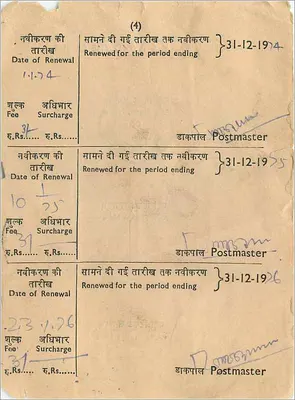 (4)
नवीकरण की सामने दी गई तारीख तक नवीकरण
तारीख Renewed for the period ending }31-12-1974
Date of Renewal
1.1.74
शुल्क अधिभार
Fee Surcharge
3/-
रु.Rs..... रु.Rs...... डाकपाल Postmaster
नवीकरण की सामने दी गई तारीख तक नवीकरण
तारीख Renewed for the period ending }31-12-1975
Date of Renewal
10 1/75
शुल्क अधिभार
Fee Surcharge
3/-
रु.Rs..... रु.Rs...... डाकपाल Postmaster
नवीकरण की सामने दी गई तारीख तक नवीकरण
तारीख Renewed for the period ending }31-12-1976
Date of Renewal
23.1.76
शुल्क अधिभार
Fee Surcharge
3/-
रु.Rs..... रु.Rs...... डाकपाल Postmaster